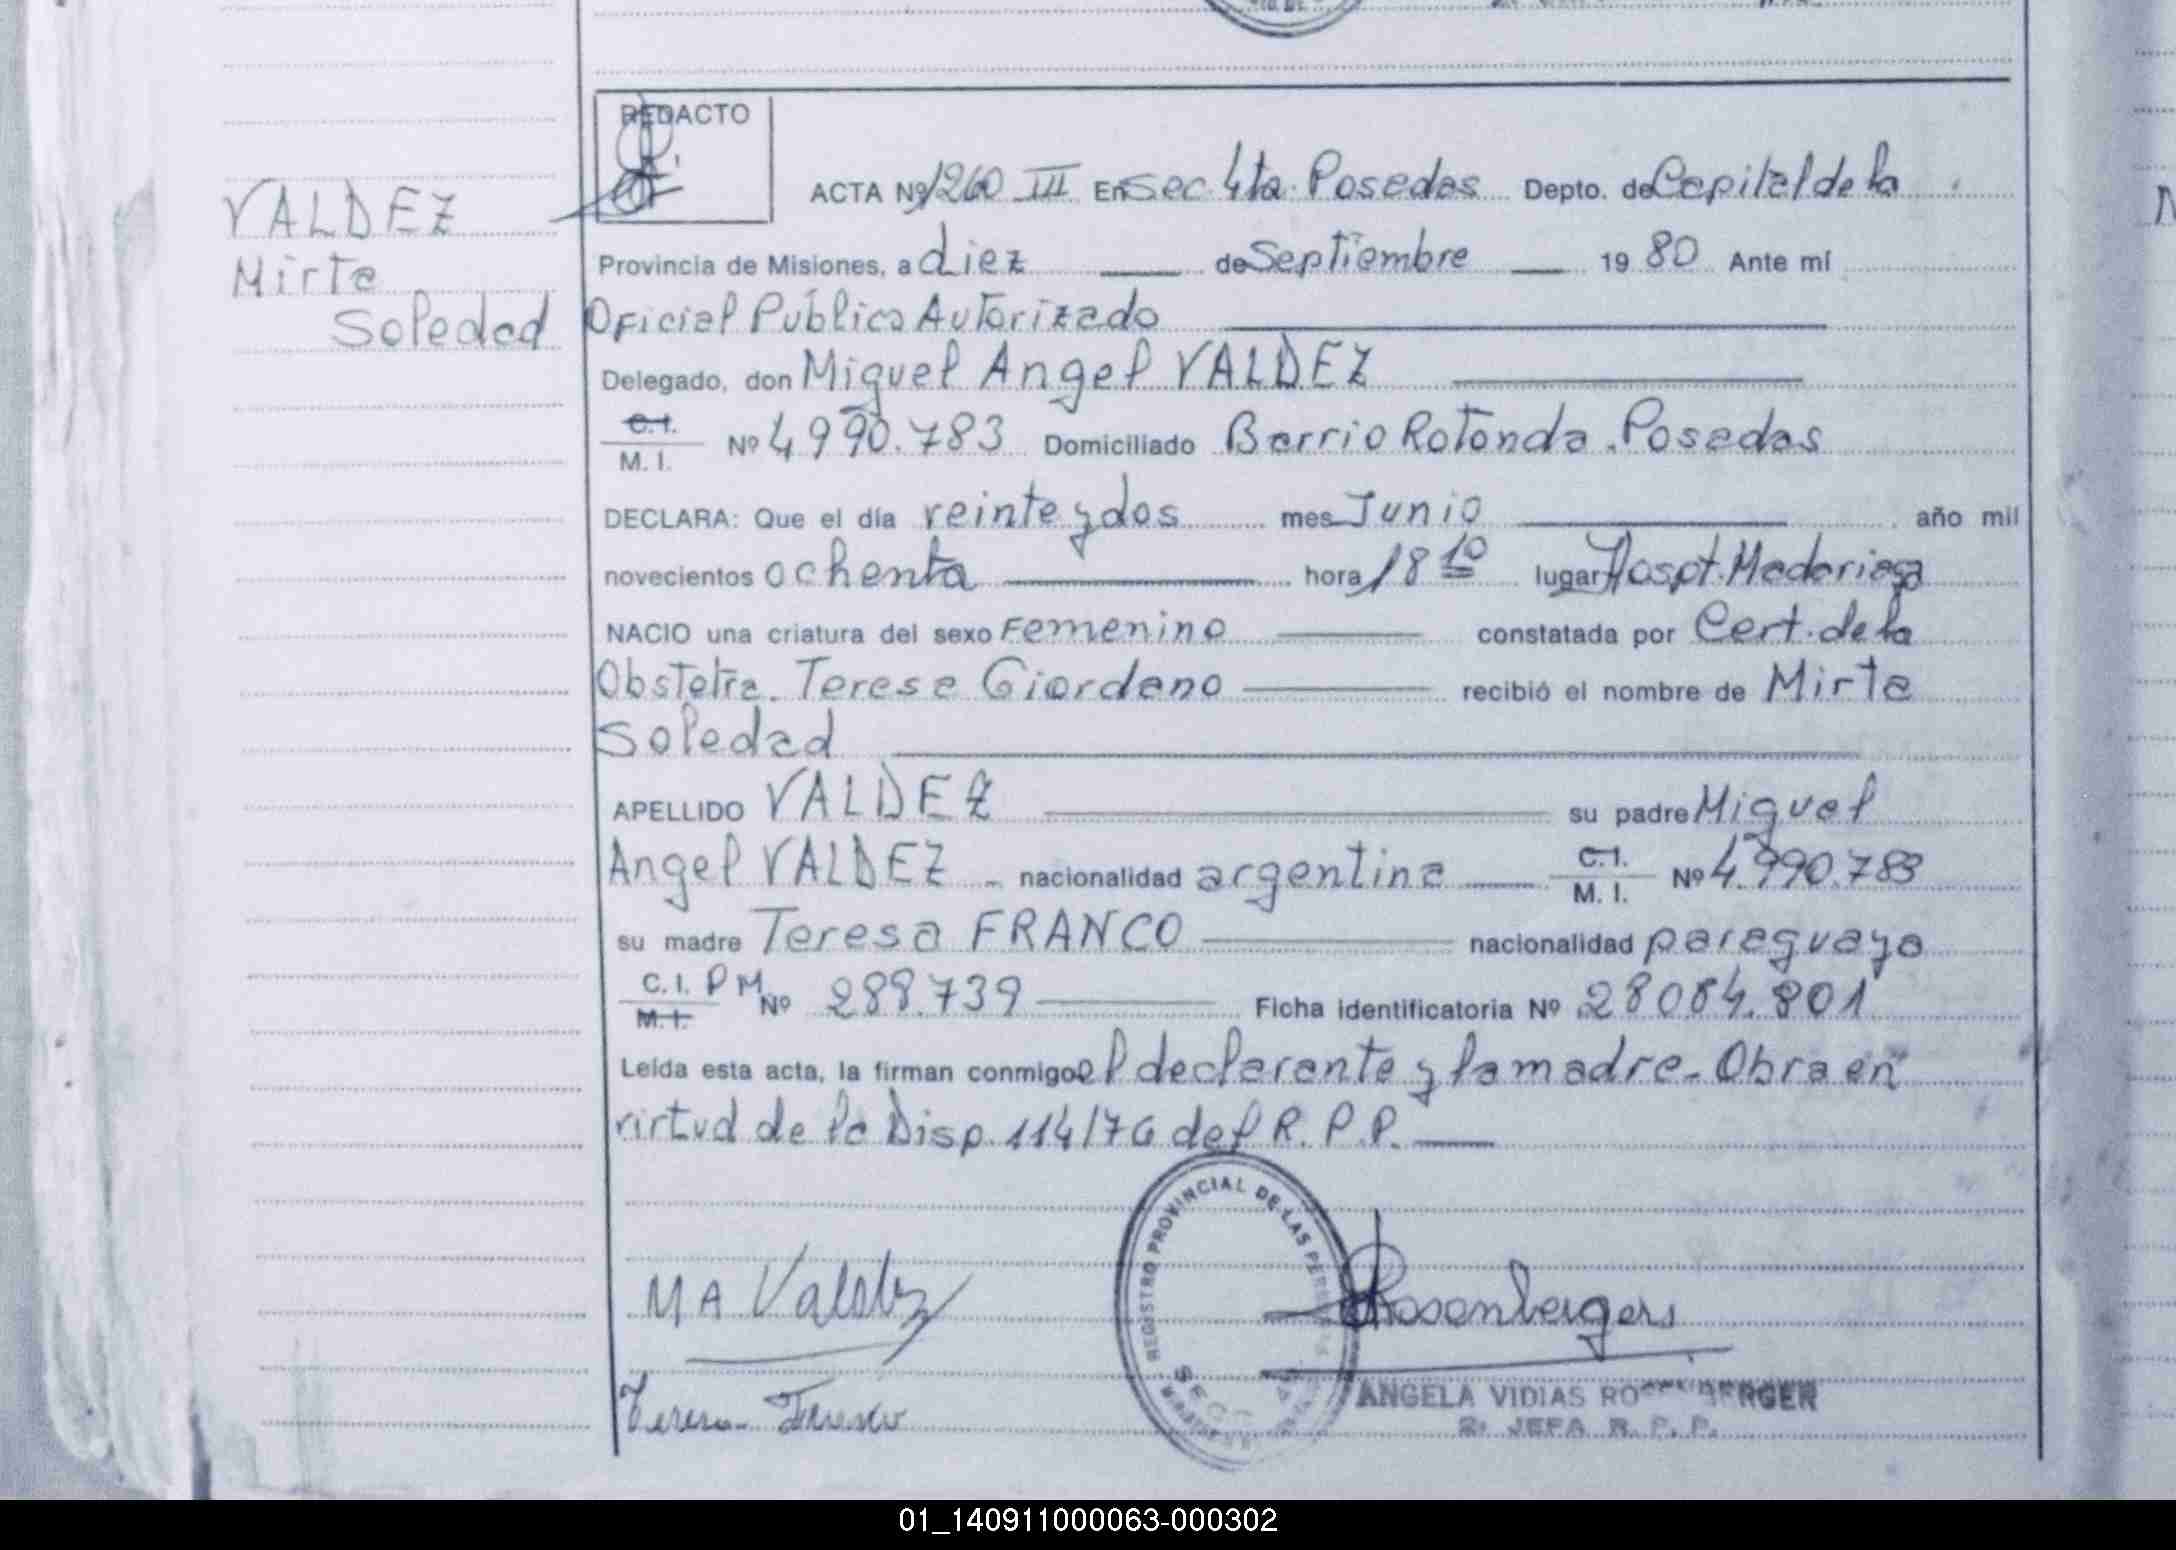 REDACTO
ACTA Nº 1260 III En Sec 4ta. Posadas Depto. de Capital de la
VALDEZ
Mirta
Soledad
Provincia de Misiones, a diez de Septiembre 19 80 Ante mí
Oficial Público Autorizado
Delegado, don Miguel Angel VALDEZ
C.I.
M. I. Nº 4990.783 Domiciliado Barrio Rotonda. Posadas
DECLARA: Que el día veinte y dos mes Junio año mil
novecientos ochenta hora 18 10 lugar Hospt. Madariaga
NACIO una criatura del sexo Femenino constatada por Cert. de la
Obstetra. Teresa Giordano recibió el nombre de Mirta
Soledad
APELLIDO VALDEZ su padre Miguel
Angel VALDEZ nacionalidad argentina C.I. M. I. Nº 4.990.783
su madre Teresa FRANCO nacionalidad paraguaya
C. I. P M. M.I. Nº 288.739 Ficha identificatoria Nº 28084.801
Leída esta acta, la firman conmigo el declarante y la madre. Obra en
virtud de la Disp. 114/76 del R. P. P.
REGISTRO PROVINCIAL DE LAS
M A Valdez
Rosenberger
Teresa Franco
ANGELA VIDIAS ROSENBERGER
2ª JEFA R. P. P.
01_140911000063-000302